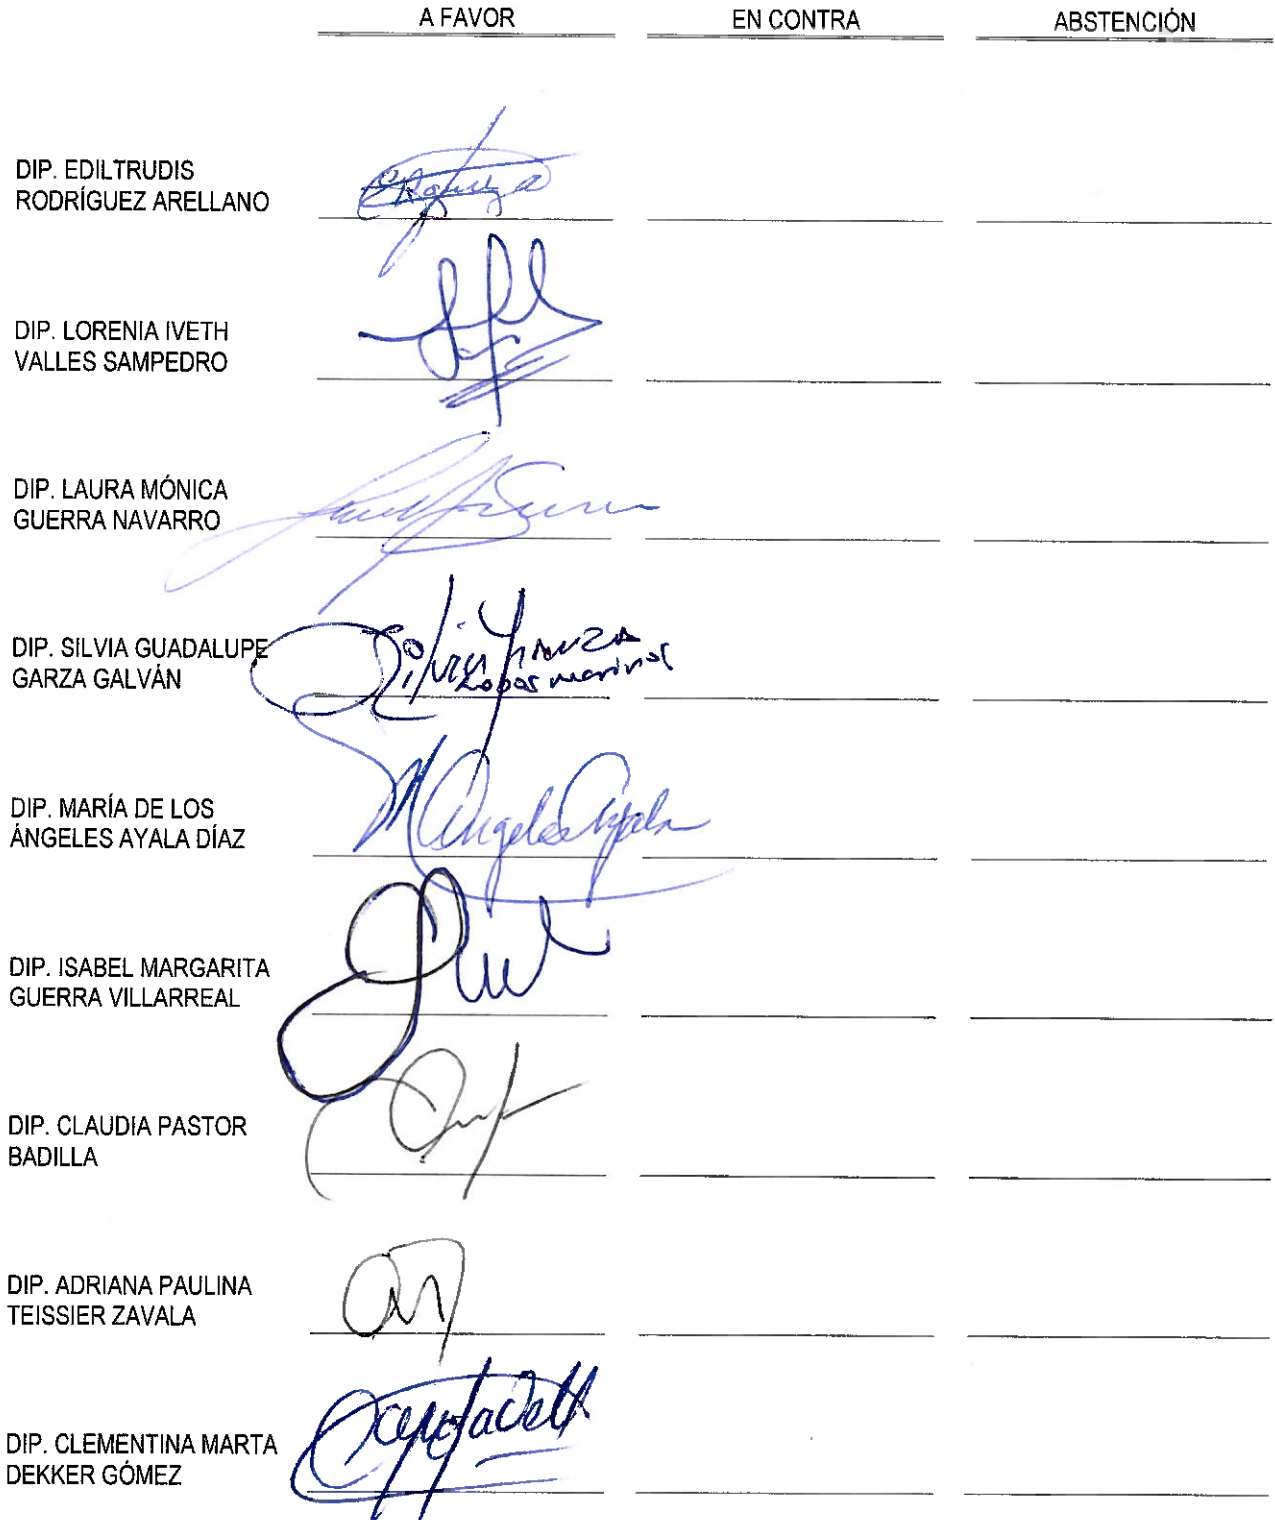 A FAVOR EN CONTRA ABSTENCIÓN
DIP. EDILTRUDIS
RODRÍGUEZ ARELLANO
DIP. LORENIA IVETH
VALLES SAMPEDRO
DIP. LAURA MÓNICA
GUERRA NAVARRO
DIP. SILVIA GUADALUPE
GARZA GALVÁN
Silvia Garza
Lobos marinos
DIP. MARÍA DE LOS
ÁNGELES AYALA DÍAZ
M Angeles Ayala
DIP. ISABEL MARGARITA
GUERRA VILLARREAL
DIP. CLAUDIA PASTOR
BADILLA
DIP. ADRIANA PAULINA
TEISSIER ZAVALA
DIP. CLEMENTINA MARTA
DEKKER GÓMEZ